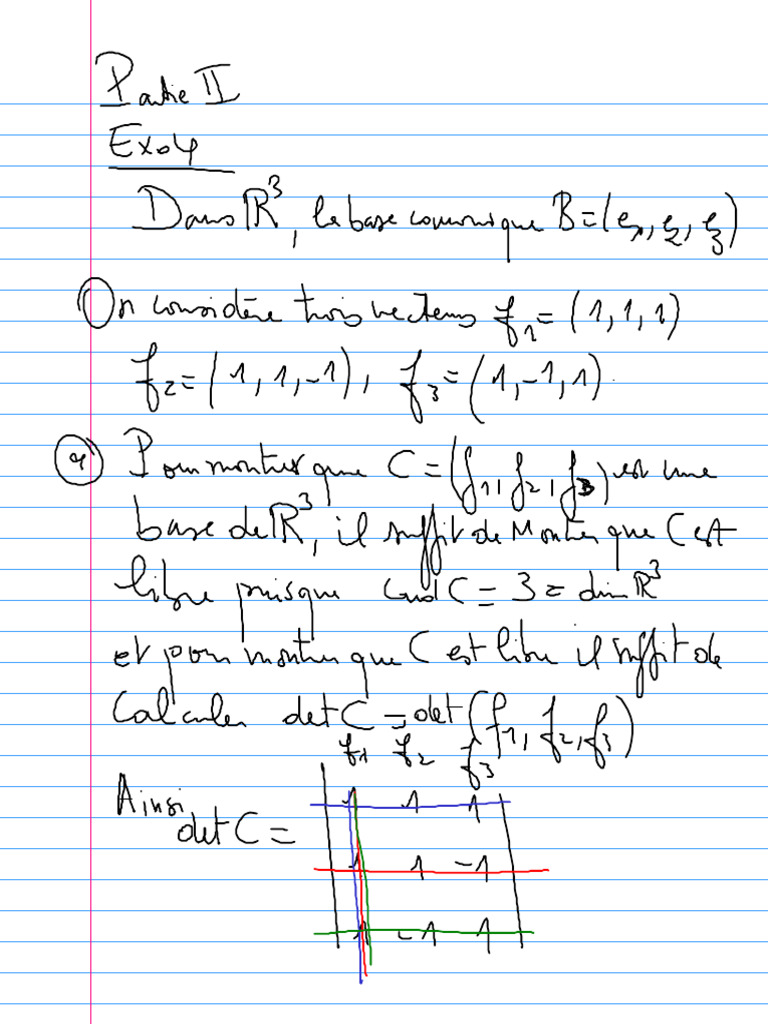 Partie II
Exo 4
Dans ℝ³, la base canonique B = (e₁, e₂, e₃)
On considère trois vecteurs f₁ = (1, 1, 1)
f₂ = (1, 1, -1), f₃ = (1, -1, 1).
Pour montrer que C = (f₁, f₂, f₃) est une
base de ℝ³, il suffit de montrer que C est
libre puisque card C = 3 = dim ℝ³
et pour montrer que C est libre il suffit de
calculer det C = det (f₁, f₂, f₃)
f₁ f₂ f₃
Ainsi det C =
1 1 1
1 1 -1
1 -1 1